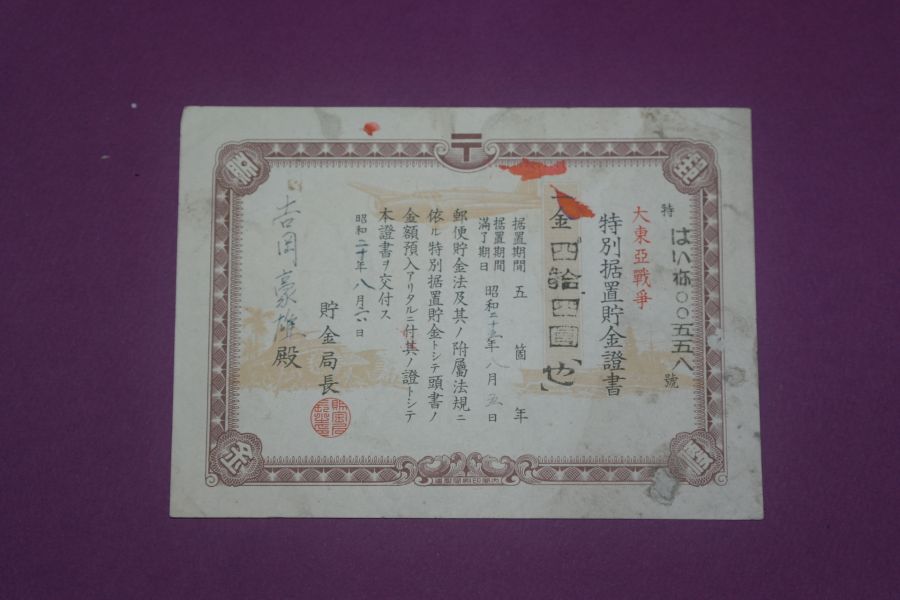 特 はい祢〇〇五五八 號
大東亞戰爭
特別据置貯金證書
金四拾四圓也
据置期間 五箇年
据置期間滿了期日 昭和二十五年八月五日
郵便貯金法及其ノ附屬法規ニ
依ル特別据置貯金トシテ頭書ノ
金額預入アリタルニ付其ノ證トシテ
本證書ヲ交付ス
昭和二十年八月六日
貯金局長
吉岡豪雄殿
〒
内閣印刷局製造